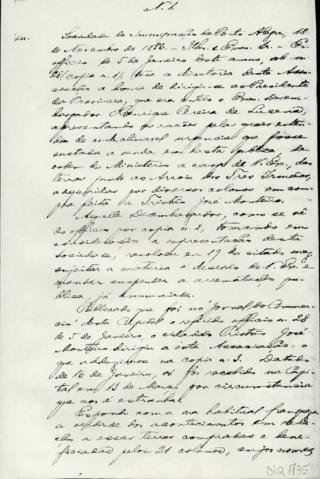 N. 4
Sociedade de Immigração de Porto Alegre, 18
de Novembro de 1886. - Illm. e Exm. Sr. - Em
officio de 5 de Janeiro deste anno, sob n.
28, copia n. 1, teve a directoria desta Asso-
ciação a honra de dirigir-se ao Presidente
da Provincia, que era então o Exm. Desem-
bargador Henrique Pereira de Lucena,
apresentando as razões
de urgencia que fosse
sustada a venda em hasta publica de
ordem do Ministerio a cargo de V. Exa., das
terras junto ao Arroio dos Tres Irmãos,
adquiridas por diversos colonos em com-
pra feita a Tristão José Monteiro.
Aquelle Desembargador, como se vê
do officio por copia n. 2, tomando em
consideração a representação desta
sociedade, resolveu em 19 do citado mez
sujeitar a materia á decisão de V. Exa. e
mandar suspender a arrematação pu-
blica já annunciada.
Publicado que foi no Jornal do Commer-
cio desta Capital o referido officio n. 28
de 5 de Janeiro, o cidadão Tristão José
Monteiro dirigiu a esta Associação o
que adduzimos na copia n. 3. Datado
de 16 de Janeiro, só foi recebido na Capi-
tal em 13 de Março por circumstancia
que nos é estranha.
Expondo com a habitual franqueza
a verdade dos acontecimentos em rela-
ção a essas terras compradas e bene-
ficiadas pelos 21 colonos, cujos nomes